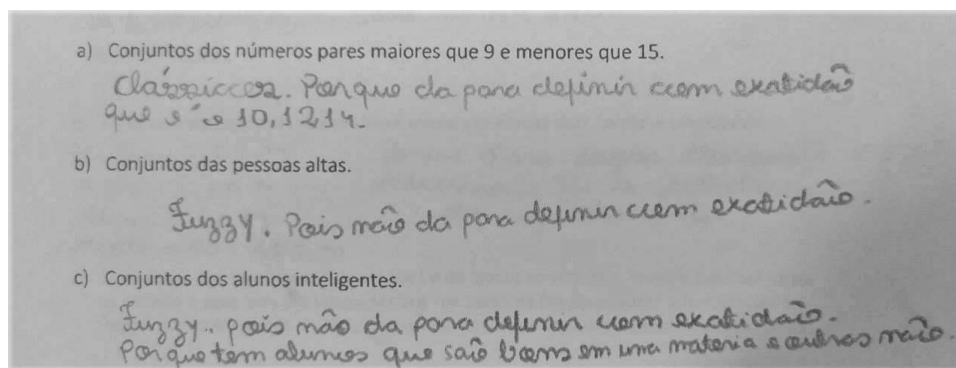 a) Conjuntos dos números pares maiores que 9 e menores que 15.
Clássicos. Porque da para definir com exatidão
que é o 10, 12, 14.
b) Conjuntos das pessoas altas.
Fuzzy. Pois não da para definir com exatidão.
c) Conjuntos dos alunos inteligentes.
Fuzzy.. pois não da para definir com exatidão.
Porque tem alunos que saõ bons em uma materia e outros não.